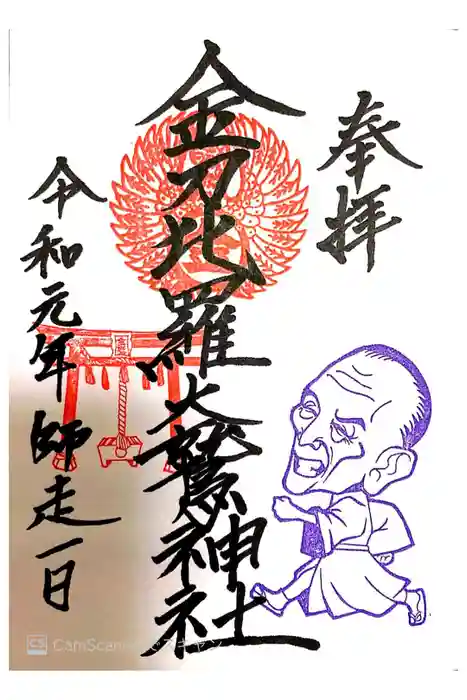 奉拝
金刀比羅大鷲神社
令和元年師走一日
CS CamScannerでスキャン